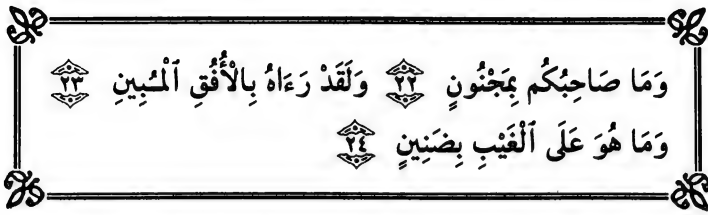 وَمَا صَاحِبُكُم بِمَجْنُونٍ ٢٢ وَلَقَدْ رَءَاهُ بِالْأُفُقِ ٱلْمُبِينِ ٢٣
وَمَا هُوَ عَلَى ٱلْغَيْبِ بِضَنِينٍ ٢٤